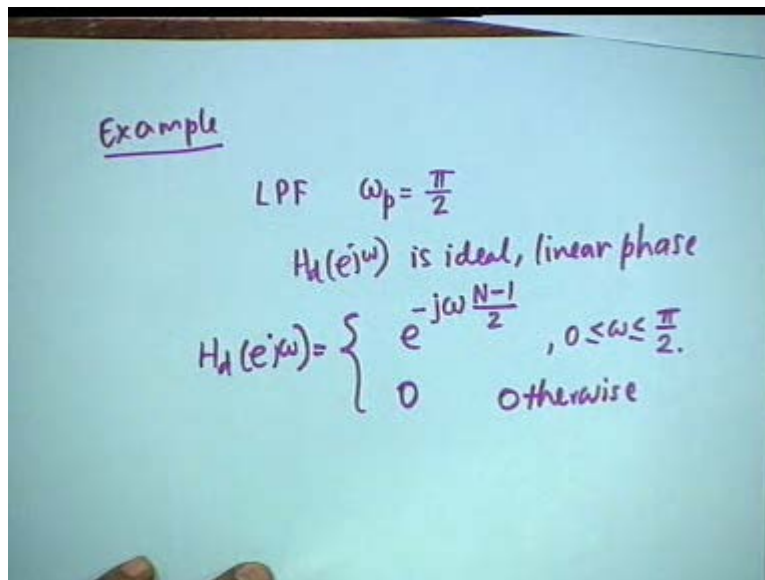 Example
LPF ωp = π/2
Hd(e^jω) is ideal, linear phase
Hd(e^jω) = { e^(-jω (N-1)/2) , 0 ≤ ω ≤ π/2.
0 otherwise